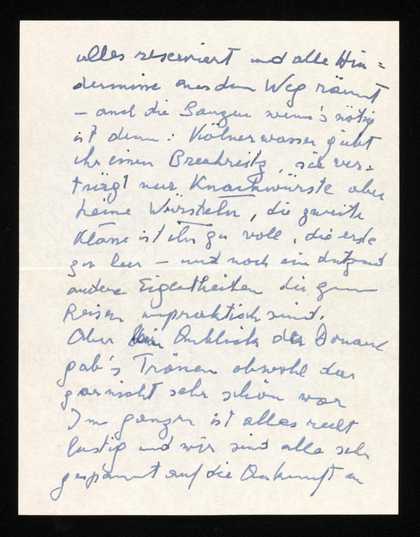 alles reserviert und alle Hin=
dernisse aus dem Weg räumt
– und die Sorgen wenn's nötig
ist denn: Kölnerwasser giebt
ihr einen Brechreitz, sie ver=
trägt nur Knackwürste aber
keine Würsteln, die zweite
Klasse ist ihr zu voll, die erste
zu leer – und noch ein dutzend
andere Eigenheiten die zum
Reisen unpraktisch sind.
Aber Anblick der Donau
gab's Tränen obwohl das
garnicht sehr schön war
Im ganzen ist alles recht
lustig und wir sind alle sehr
gespannt auf die Ankunft in